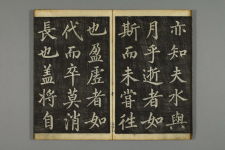 亦知夫水與
月乎逝者如
斯而未嘗往
也盈虛者如
代而卒莫消
長也蓋將自